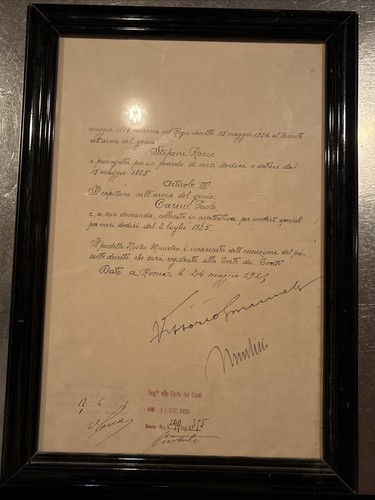 maggio 1924 concessa col Regio decreto 15 maggio 1924 al tenente
nell'arma del genio
Stefani Rocco
è prorogata per un periodo di mesi dodici a datare dal
15 maggio 1925
Articolo III
Il capitano nell'arma del genio:
Carini Paolo
è, a sua domanda, collocato in aspettativa per motivi speciali
per mesi dodici dal 2 luglio 1925
Il predetto Nostro Ministro è incaricato dell'esecuzione del pre
sente decreto che sarà registrato alla Corte dei Conti
Dato a Roma, li 24 maggio 1925
Vittorio Emanuele
Mussolini
Reg° alla Corte dei Conti
Guerra Reg. 299